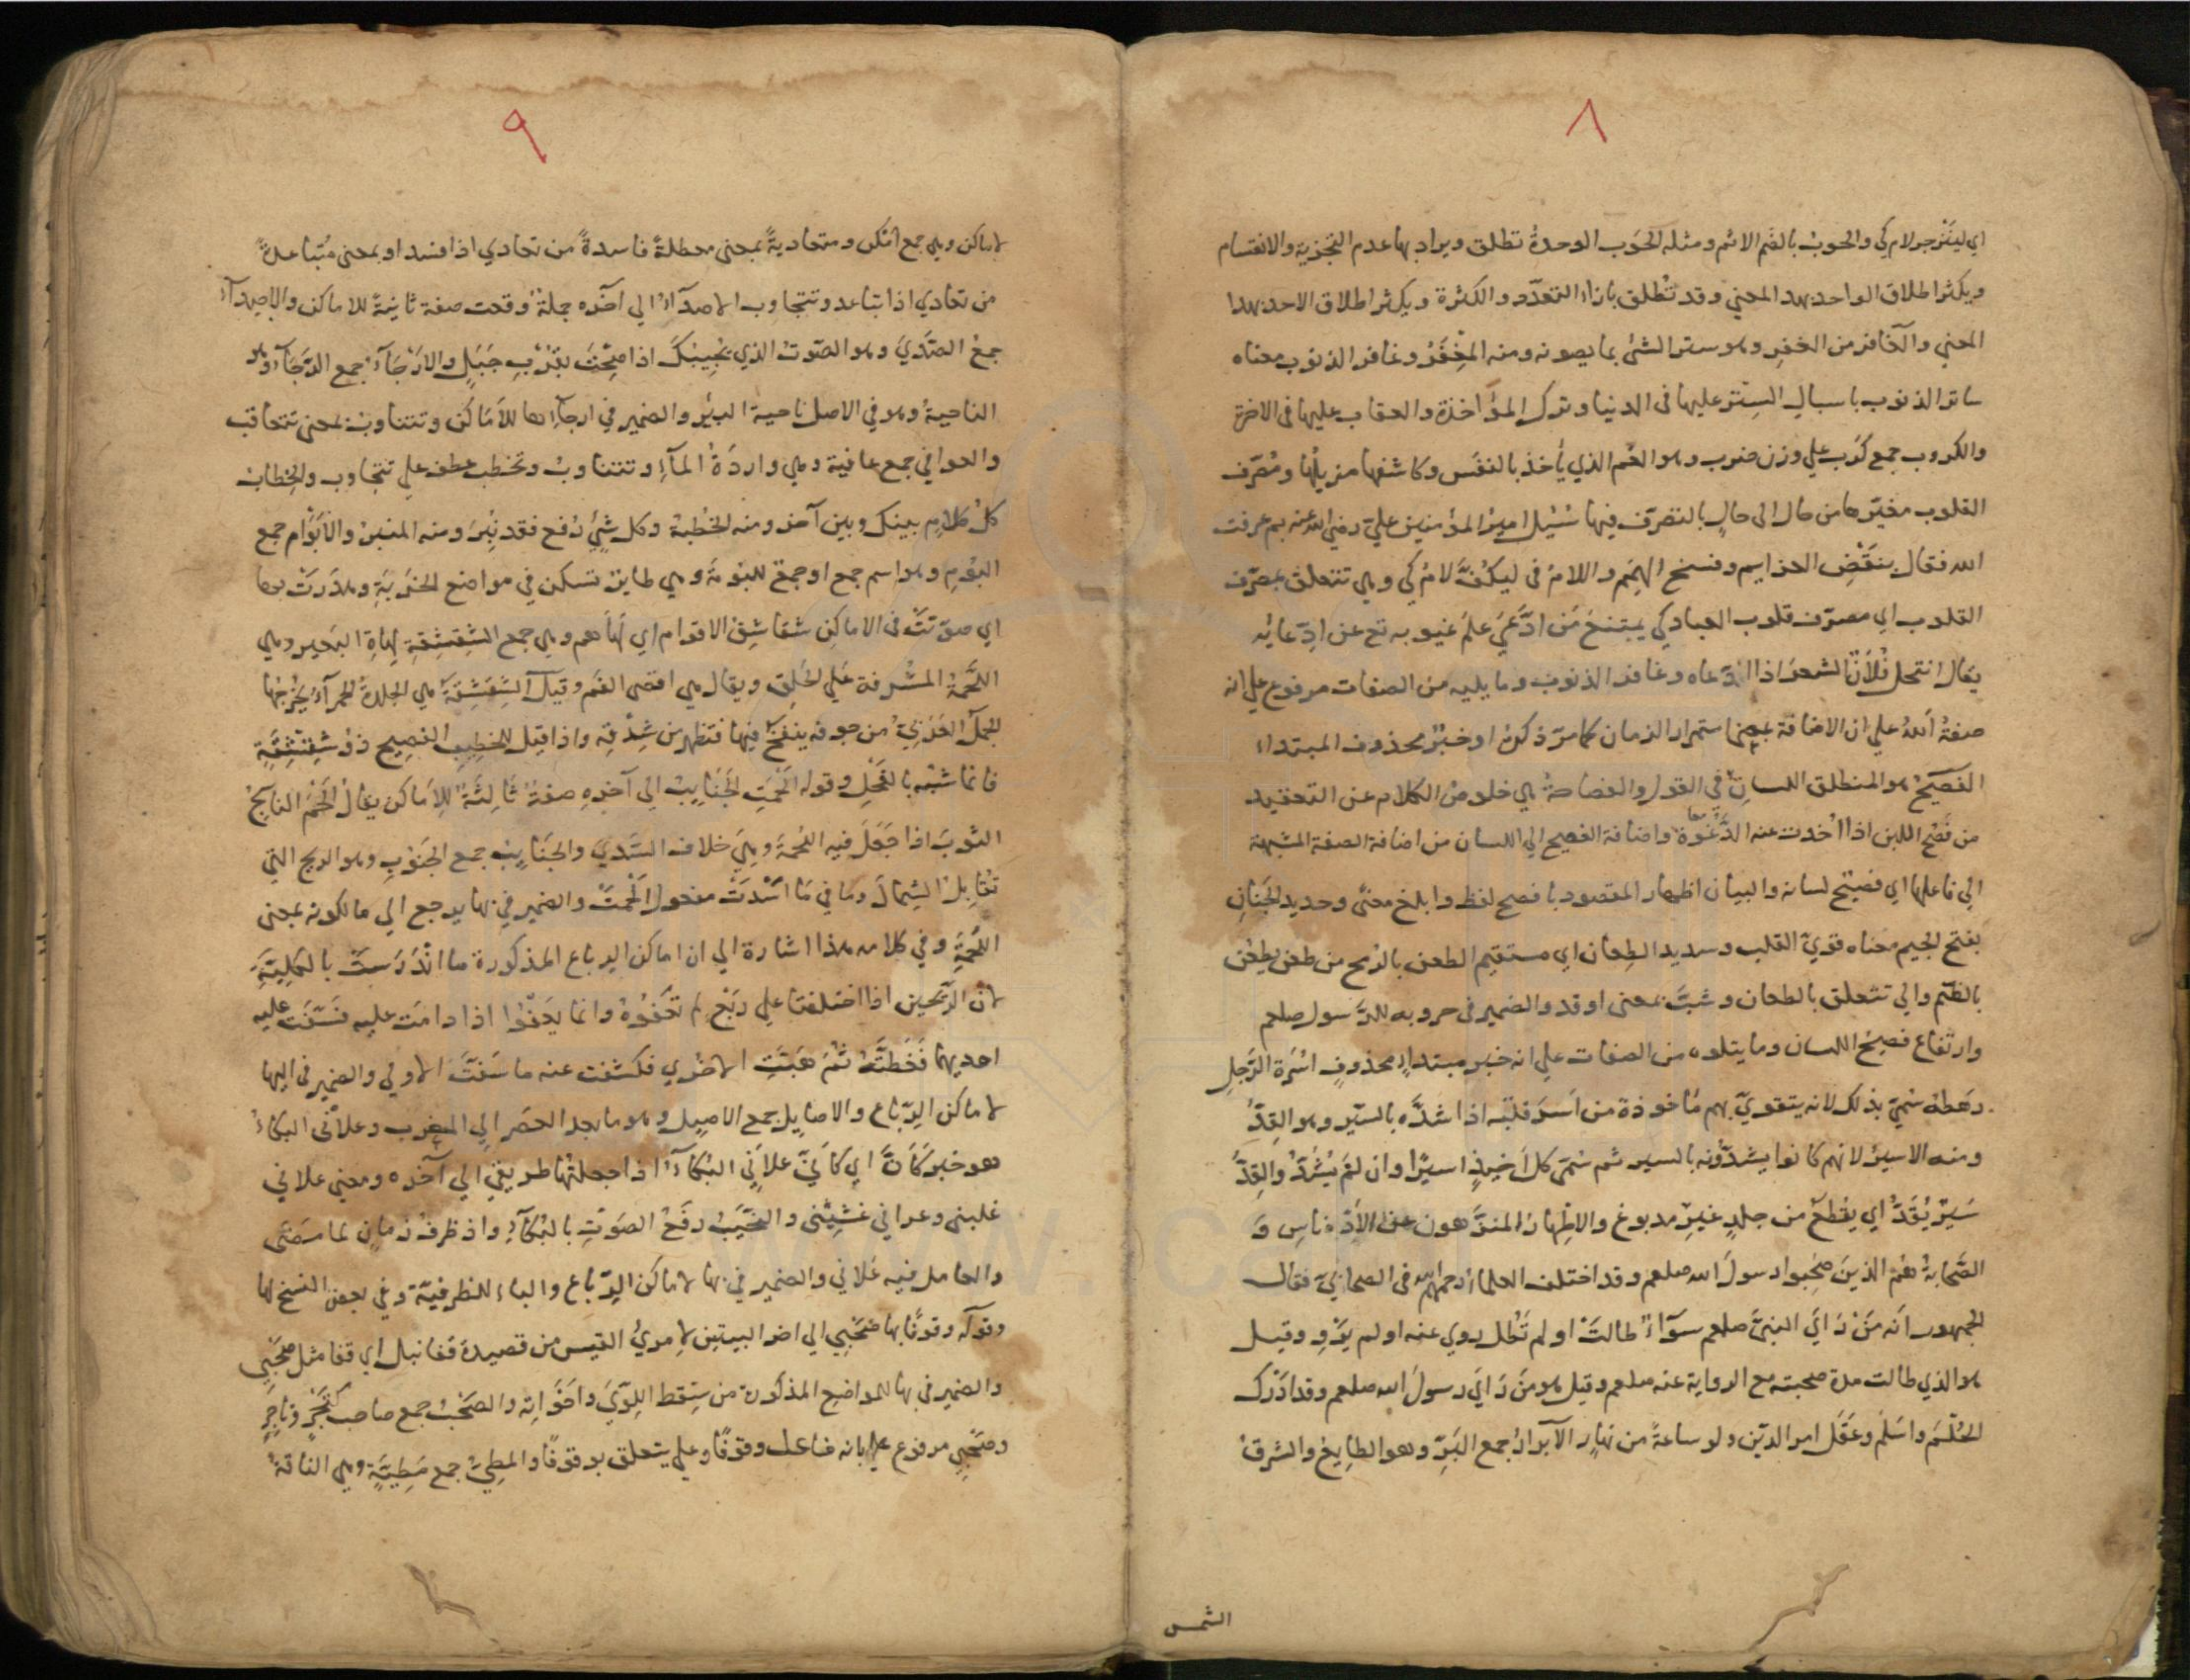 ٨
اي لينزجر لام كي والحوب بالضم الاثم ومثله الحَوب الوحدة تطلق ويراد بها عدم التجزية والانقسام
ويكثر اطلاق الواحد بهذا المعني وقد تطلق بازاء التعدّد والكثرة ويكثر اطلاق الاحد بهذا
المعني والغافر من الغفر وهو ستر الشئ بما يصونه ومنه المِغْفَرُ وغافر الذنوب معناه
ساتر الذنوب باسبال السِتر عليها فى الدنيا وترك المؤاخذة والعقاب عليها فى الاخرة
والكروب جمع كَرب علي وزن ضرب وهو الغم الذي يأخذ بالنفس وكاشفها مزيلها ومُصَرّف
القلوب مغيّرها من حال الى حالٍ بالتصرّف فيها سُئِل امير المؤمنين عليّ رضي الله عنه بم عرفت
الله فقال بنقض العزايم وفسخ الهِمَم واللام فى ليكُفّ لام كي وهي تتعلق بمصرّف
القلوب اي مصرّف قلوب العباد كي يمتنع مَن ادَّعَي علمَ غيوبه تع عن ادّعائه
يقال انتحل فلانٌ الشعر اذا ادّعاه وغافر الذنوب وما يليه من الصفات مرفوع علي انه
صفةُ اللهُ علي ان الاضافة بمعنا استمرار الزمان كما مرّ ذكره او خبرُ محذوف المبتداء
الفصيحُ هو المنطلق اللسانِ فى القول والفصاحةُ هي خلوصُ الكلام عن التعقيد
من فَصُح اللبن اذا اُخذت عنه الرّغوة واضافة الفصيح الي اللسان من اضافة الصفة المشبهة
الي فاعلها اي فصيحٌ لسانه والبيان اظهار المقصود بافصح لفظ وابلغ معنًى وحديد الجَنانِ
بفتح الجيم معناه قويّ القلب وسديد الطِعان اي مستقيم الطعن بالرُمح من طعن يطعُن
بالضّم والي تتعلق بالطعان وشبَّ بمعنى اوقد والضمير فى حروبه للرّسول صلعم
وارتفاع فصيحُ اللسان وما يتلوه من الصفات علي انه خبر مبتداءٍ محذوفٍ اُسْرَة الرَّجلِ
رهطه سُمِّيَ بذلك لانه يتقويّ بهم مأخوذة من اَسَرَ قتبَه اذا شدَّه بالسَّير وهو القِدُّ
ومنه الاسير لانهم كانوا يشدّونه بالسير ثم سُمّيَ كل اَخيذٍ اسيرًا وان لم يُشَدّ والقِدُّ
سَيرٌ يُقَدُّ اي يقطع من جلدٍ غيرِ مدبوغ والاطهارُ المنزَّهون عن الادناس وَ
الصَّحابةُ هُمُ الذينَ صَحِبوا رسولَ الله صلعم وقد اختلف العلماءُ رحمهم الله فى الصحابيّ فقال
الجمهور انّه مَنْ رَاَيَ النبيَّ صلعم سوآءٌ طالتْ او لم تَطُل روي عنه او لم يَرْوِ وقيل
هو الذي طالت مدة صحبته مع الرواية عنه صلعم وقيل هو مَنْ رَاَيَ رسولَ الله صلعم وقد اَدْرَك
الحُلُمَ واَسْلَم وعَقَل امرَ الدين ولو ساعةً من نهارٍ الاَبرارُ جمع البَرّ وهو الطايع والشرقُ
الشمس
٩
لاماكن وهي جمع امْكُن ومتعاديةً بمعنى معطلةً فاسدةً من تعادي اذا فسد او بمعنى مُتباعدةً
من تعادي اذا تباعد وتتجاوب الاصدآءُ الي آخره جملةٌ وقعت صفة ثانيةً للاماكن والاصدآءُ
جمعُ الصَّدَيَ وهو الصّوتُ الذي يُجيبُكَ اذا صِحْتَ بقُرْبِ جَبَلٍ والارْجَآءُ جمع الرَجَآء وهو
الناحيةُ وهو في الاصل ناحية البئر والضمير في ارجآءِها للاَمَاكن وتتناوبُ بمعنى تتعاقب
والعوافي جمع عافية وهي واردةُ المآءِ وتتناوبُ وتخطب عطف علي تتجاوب والخِطابُ
كلُّ كلامٍ بينك وبين آخر ومنه الخُطْبةُ وكل شئٍ رُفع فقد نُبِرَ ومنه المنبرُ والاَبْوَام جمع
البُوم وهو اسم جمع او جمعٌ للبُومَةُ وهي طاير تسكن في مواضع الخَرِبَةِ وهَدَرَتْ بها
اي صوّتتْ فى الاماكن شقاشِقُ الاقوام اي لَهَاهم وهي جمع الشِقشِقةِ لهاة البَعير وهي
اللَّحمةُ المشرفة علي الحَلق ويقال هي اقصى الفَم وقيل الشِقشِقةُ هي الجلدةُ الحمرآءُ يُخرجُها
الجمل العَرَبيّ من جوفه ينفخ فيها فتظهر من شِدْقِه واذا قيل للخطيب الفصيح ذو شِقْشِقةٍ
فانما شُبّه بالفَحْل وقوله اَلْحَمَتِ الجَنَايبُ الي آخرهِ صفةٌ ثالِثةٌ للاَماكن يقالُ اَلْحَمَ الناسِجُ
الثوبَ اذا جَعَلَ فيه اللُحمةَ وهيَ خلاف السَّدَي والجَنَايبُ جمع الجَنُوب وهو الريح التي
تُقابلُ الشِمالَ وما في مَا اَسْدَتْ مفعول اَلْحَمَتْ والضمير في بها يرجع الي ما لكونه بمعنى
اللُّحمَةِ وفي كلامه هذا اشارة الي ان اماكن الرباع المذكورة ما انْدَرَسَتْ بالكلية
لانّ الرّيحين اذا اختلفتا علي رَبْعٍ لم تَعْفُوهُ وانما يَعْفُوا اذا دامَت عليه فسَفَت عليه
احديهما فَغَطَّتْه ثُمّ هَبَّتِ الاخري فكشفت عنه ما سَفَت الاولي والضمير فى اليها
لاماكن الرّباع والاصايل جمع الاصيل وهو ما بعد العصر الي المغرب وعلانّى البكآءُ
هو خبر كَأَنَّ اي كأنيّ علاني البُكآءُ اذا جعلتُها طريقي الي آخره ومعنى علاني
غلبنى وعراني غَشِيَنى والنَّحيبُ رفعُ الصَوْتِ بالبُكآءِ واذ ظرفُ زمانٍ لما مضى
والعامل فيه عَلاني والضمير في بها لاماكن الرّباع والباء للظرفيّة وفي بعض النسخ لها
وقوله وقوفًا بها صَحْبي الي اخر البيتين لامرئ القيس من قصيدة قفا نبك اي قفا مثل صَحْبي
والضمير فى بها للمواضع المذكورة من سِقط اللِوَيَ واخواتِه والصَحْبُ جمع صاحب كتَجْرٍ وتاجرٍ
وصَحْبي مرفوع علي انه فاعل وقوفًا وعلي يتعلق بوقوفًا والمطيُّ جمع مَطِيَّةٍ وهي الناقةُ